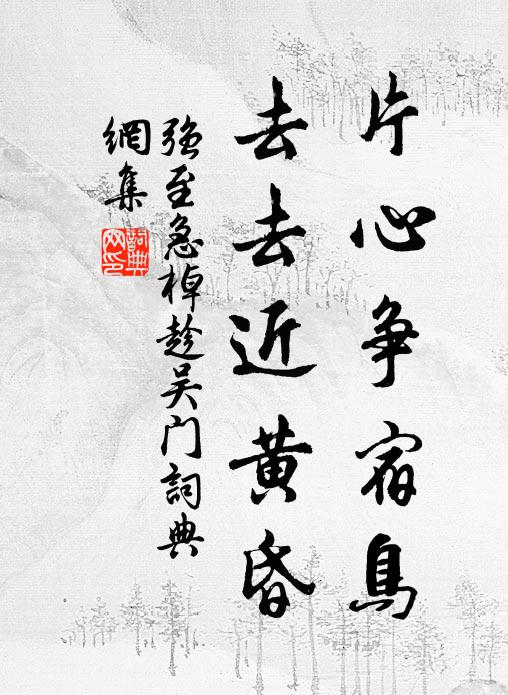 片心争宿鳥
去去近黄昏
强至急棹趁吴门詞典
網集
詞典
网印